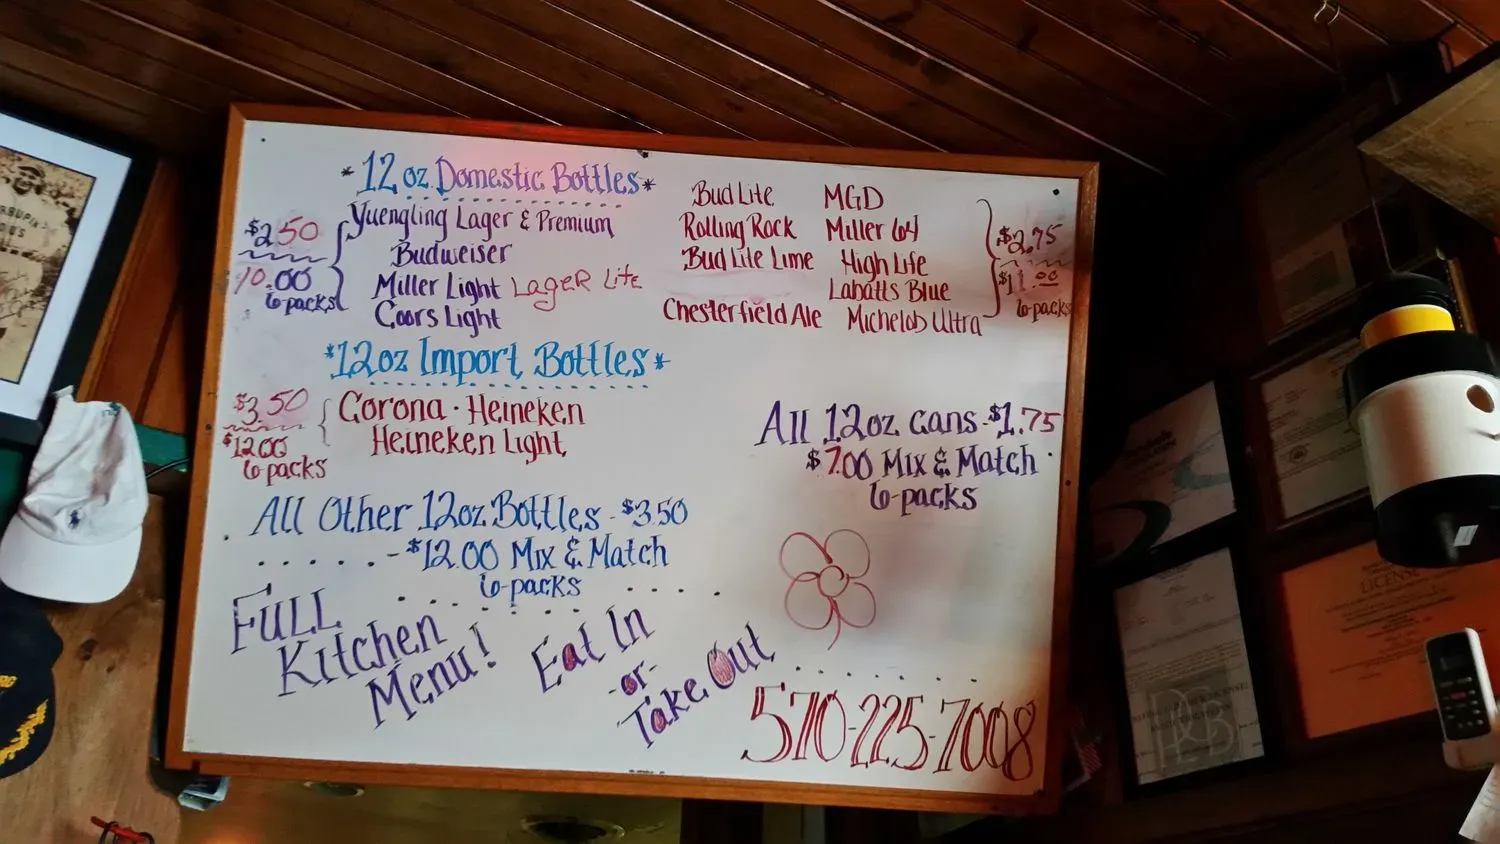 *12 oz. Domestic Bottles*
$2.50
10.00
6-packs
Yuengling Lager & Premium
Budweiser
Miller Light Lager Lite
Coors Light
Bud Lite MGD
Rolling Rock Miller 64
Bud Lite Lime High Life
Labatts Blue
Chesterfield Ale Michelob Ultra
$2.75
$11.00
6-packs
*12oz Import Bottles*
$3.50
$12.00
6-packs
Corona - Heineken
Heineken Light
All 12oz cans - $1.75
$7.00 Mix & Match
6-packs
All Other 12oz Bottles - $3.50
- $12.00 Mix & Match
6-packs
Full
Kitchen
Menu!
Eat In
-or-
Take Out
570-225-7008
LICENSE